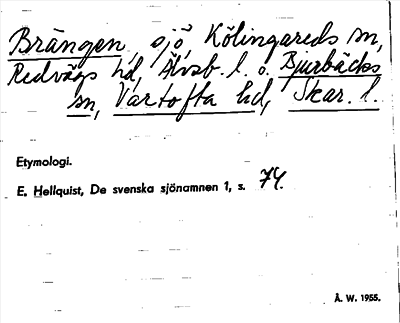 Brängen, sjö, Kölingareds sn,
Redvägs hd, Älvsb. l. o. Bjurbäcks
sn, Vartofta hd, Skar. l.
Etymologi.
E. Hellquist, De svenska sjönamnen 1, s. 74.
Å. W. 1955.